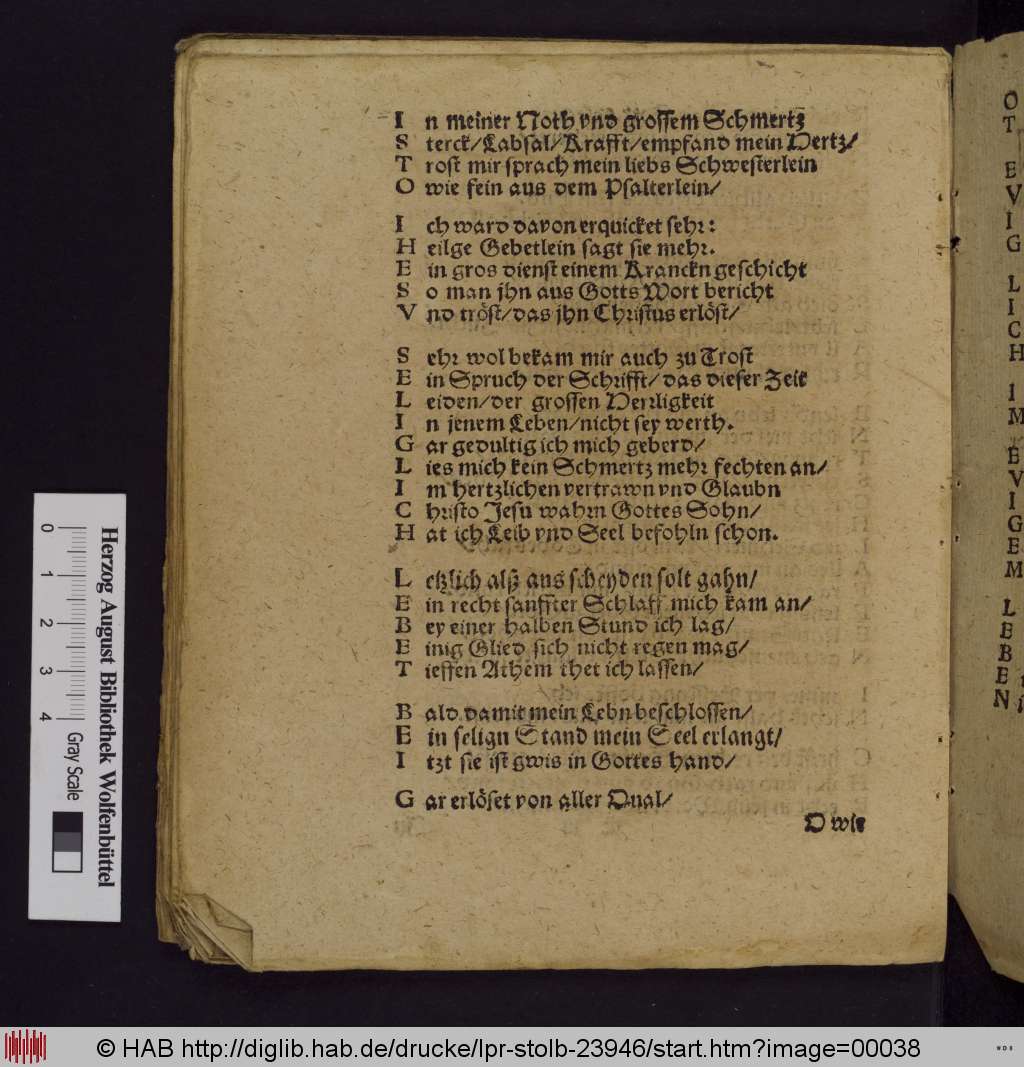 I n meiner Noth vnd grossem Schmertz
S terck/Labsal/Krafft/empfand mein Hertz/
T rost mir sprach mein liebs Schwesterlein
O wie fein aus dem Psalterlein/
I ch ward davon erquicket sehr:
H eilge Gebetlein sagt sie mehr.
E in gros dienst einem Kranckn geschicht
S o man jhn aus Gotts Wort bericht
V nd tröst/das jhn Christus erlöst/
S ehr wol bekam mir auch zu Trost
E in Spruch der Schrifft/das dieser Zeit
L eiden/der grossen Herrligkeit
I n jenem Leben/nicht sey werth.
G ar gedultig ich mich geberd/
L ies mich kein Schmertz mehr fechten an/
I m hertzlichen vertrawn vnd Glaubn
C hristo Jesu wahrn Gottes Sohn/
H at ich Leib vnd Seel befohln schon.
L etzlich alß ans scheyden solt gahn/
E in recht sanffter Schlaff mich kam an/
B ey einer halben Stund ich lag/
E inig Glied sich nicht regen mag/
T ieffen Athem thet ich lassen/
B ald damit mein Lebn beschlossen/
E in selign Stand mein Seel erlangt/
I tzt sie ist gwis in Gottes hand/
G ar erlöset von aller Qual/
O wie
O
T
E
V
I
G
L
I
C
H
I
M
E
V
I
G
E
M
L
E
B
E
N
Herzog August Bibliothek Wolfenbüttel
0 1 2 3 4 Gray Scale
© HAB http://diglib.hab.de/drucke/lpr-stolb-23946/start.htm?image=00038